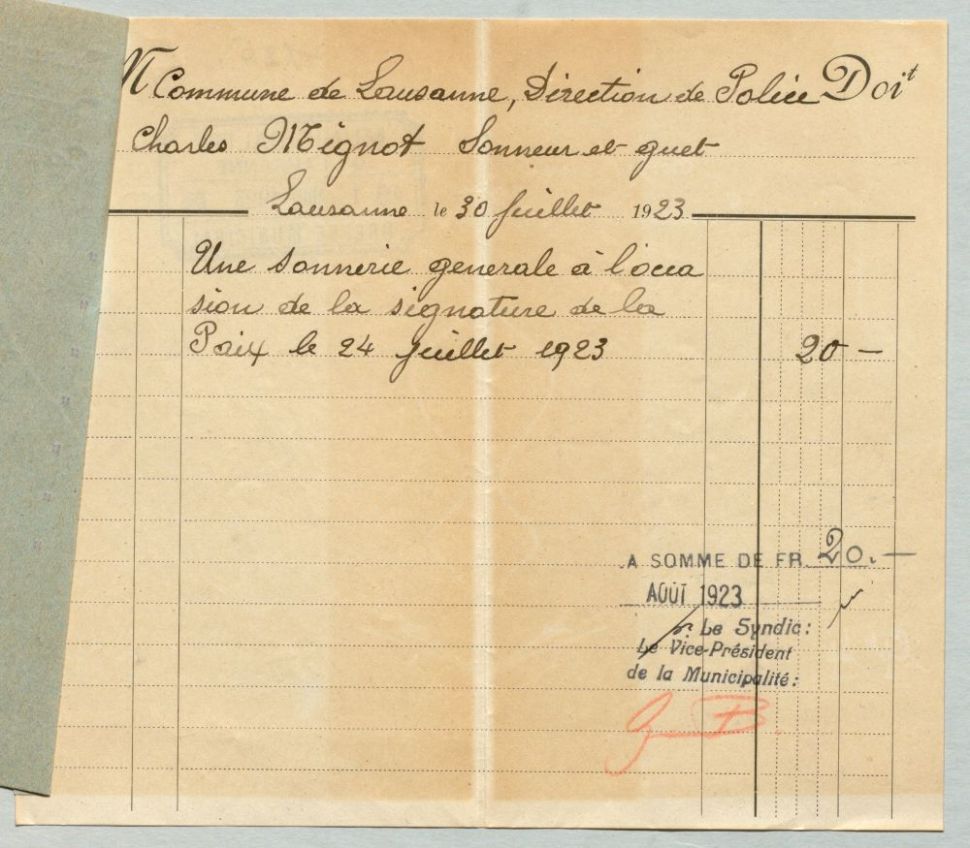 M Commune de Lausanne, Direction de Police Doit
Charles Mignot Sonneur et guet
Lausanne le 30 Juillet 1923
Une sonnerie generale à l'occa
sion de la signature de la
Paix le 24 juillet 1923 20 —
A SOMME DE FR. 20. —
AOÛT 1923
p. Le Syndic:
Le Vice-Président
de la Municipalité: